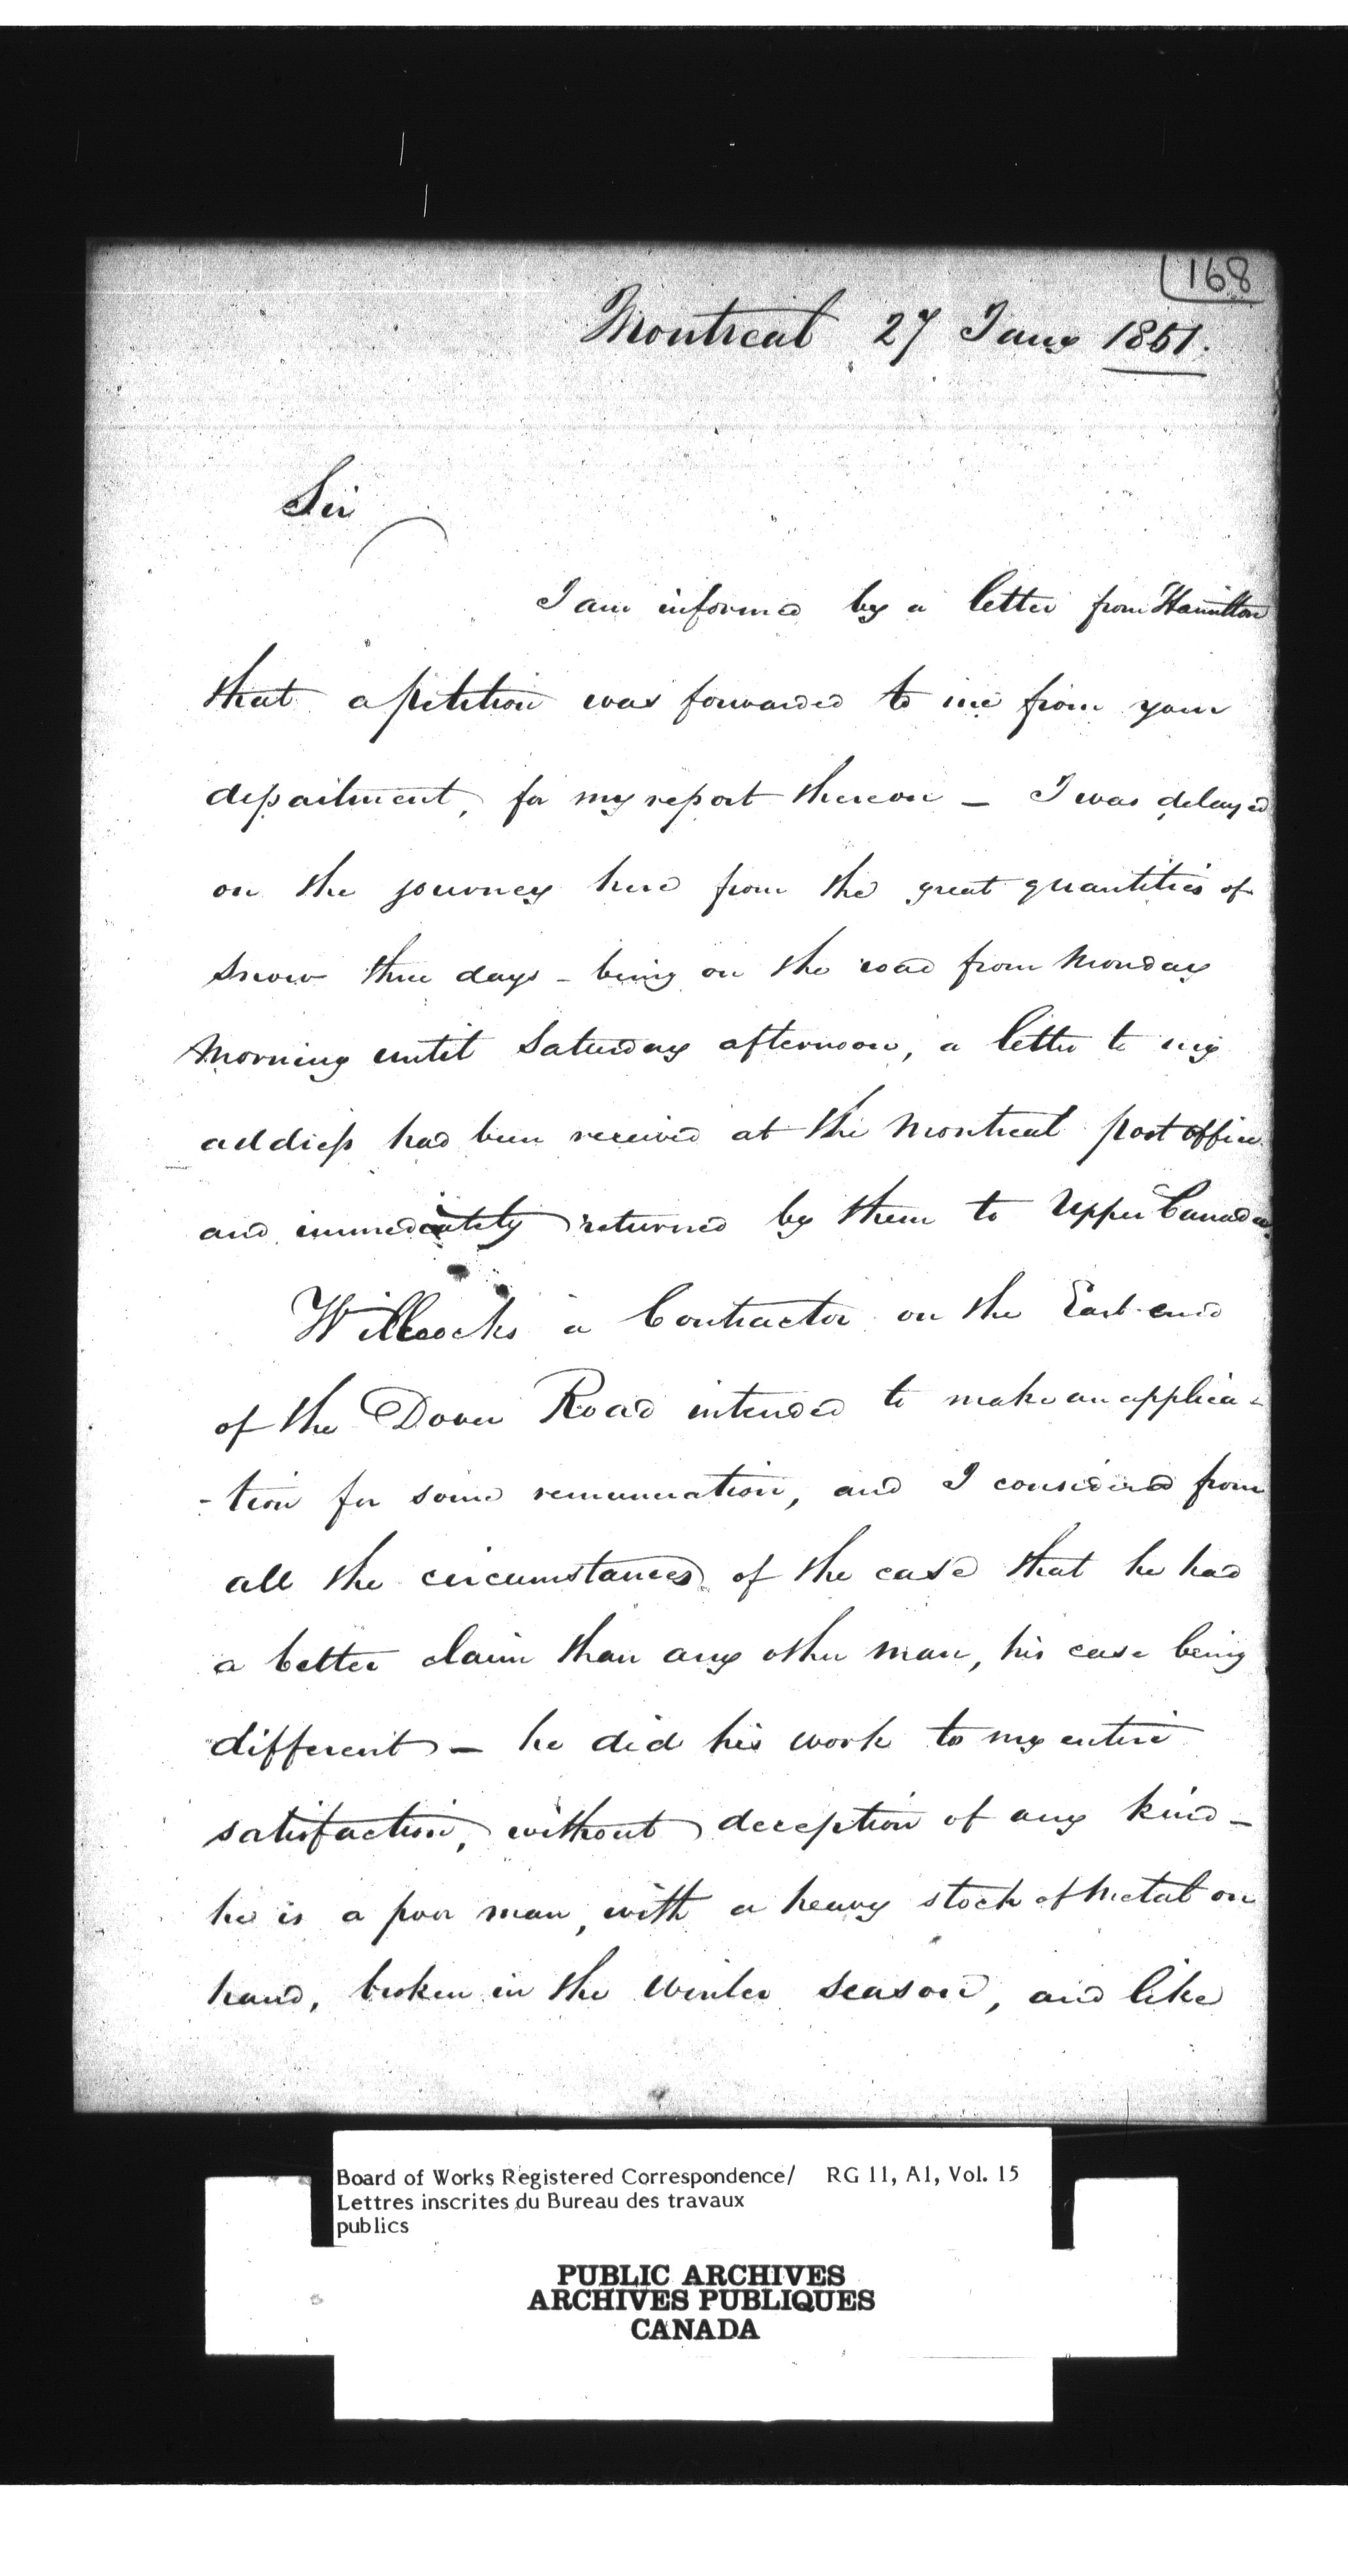 168
Montreal 27 Jany 1851.
Sir
I am informed by a letter from Hamilton
that a petition was forwarded to me from your
department, for my report thereon – I was delayed
on the journey here from the great quantities of
snow three days – being on the road from Monday
Morning until Saturday afternoon, a letter to my
address had been received at the Montreal post office
and immediately returned by them to Upper Canada
Willcocks a Contractor on the East end
of the Dover Road intended to make an applica-
-tion for some remuneration, and I considered from
all the circumstances of the case that he had
a better claim than any other man, his case being
different – he did his work to my entire
satisfaction, without deception of any kind –
he is a poor man, with a heavy stock of Metal on
hand, broken in the Winter season, and like
Board of Works Registered Correspondence/ RG 11, A1, Vol. 15
Lettres inscrites du Bureau des travaux
publics
PUBLIC ARCHIVES
ARCHIVES PUBLIQUES
CANADA